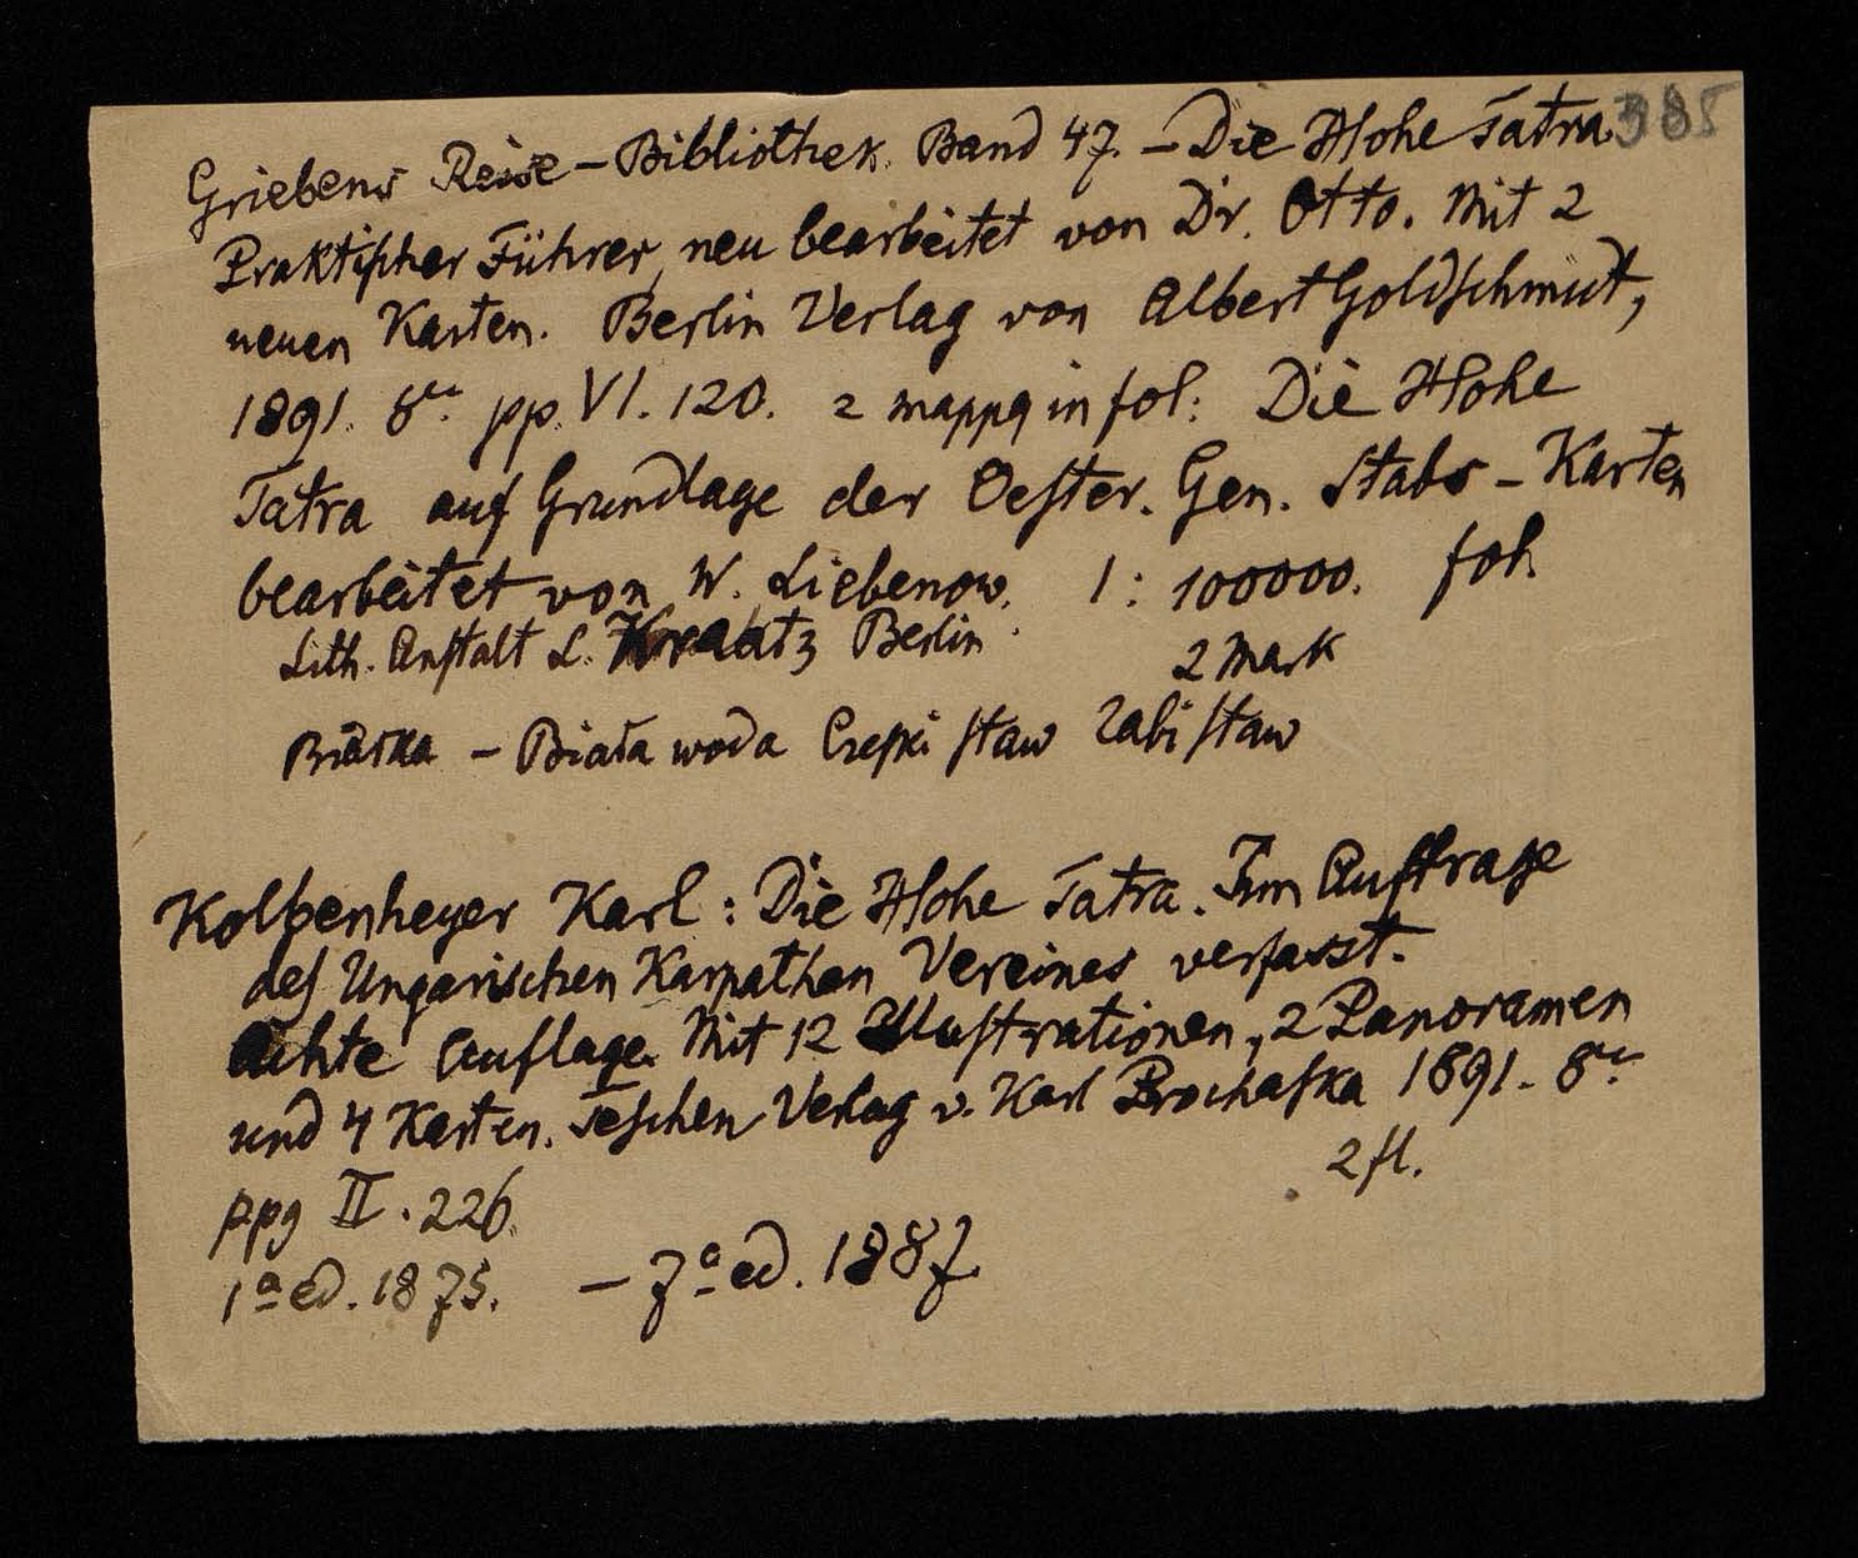 Griebens Reise-Bibliothek. Band 47. – Die Hohe Tatra. 385
Praktischer Führer, neu bearbeitet von Dr. Otto. Mit 2
neuen Karten. Berlin Verlag von Albert Goldschmidt,
1891. 8vo. pp. VI. 120. 2 mappy in fol: Die Hohe
Tatra auf Grundlage der Oester. Gen. Stabs-Karten
bearbeitet von W. Liebenow. 1:100000. fol.
Lith. Anstalt L. Kraatz Berlin. 2 Mark
Białka – Biała woda Czeski staw Żabi staw
Kolbenheyer Karl: Die Hohe Tatra. Im Auftrage
des Ungarischen Karpathen Vereines verfasst.
Achte Auflage. Mit 12 Illustrationen, 2 Panoramen
und 4 Karten. Teschen Verlag v. Karl Prochaska 1891. 8vo.
2 fl.
ppg II. 226.
1ª ed. 1875. – 7ª ed. 1887.